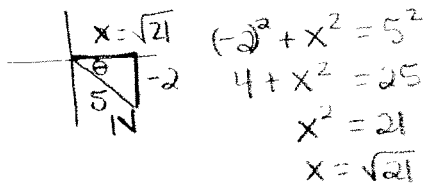 x = √21
θ
-2
5
IV
(-2)² + x² = 5²
4 + x² = 25
x² = 21
x = √21